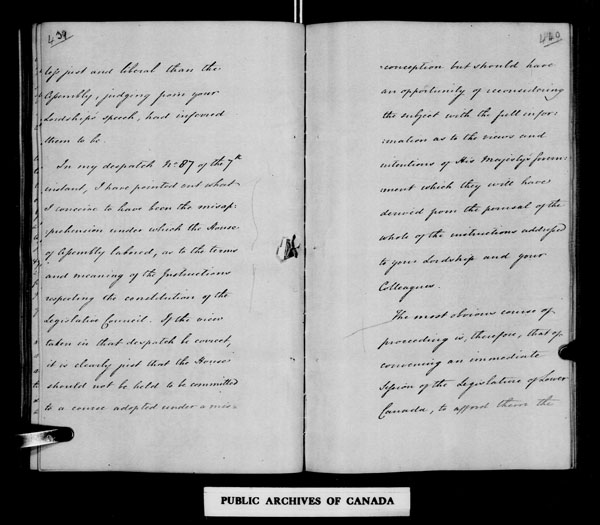 439
less just and liberal than the
Assembly, judging from your
Lordship's speech, had inferred
them to be.
In my despatch No 87 of the 7th
instant, I have pointed out what
I conceive to have been the misap-
prehension under which the House
of Assembly labored, as to the terms
and meaning of the Instructions
respecting the constitution of the
Legislative Council. If the view
taken in that despatch be correct,
it is clearly just that the House
should not be held to be committed
to a course adopted under a mis-
440
conception but should have
an opportunity of reconsidering
the subject with the full infor-
:mation as to the views and
intentions of His Majesty's Govern:
:ment which they will have
derived from the perusal of the
whole of the instructions addressed
to your Lordship and your
Colleagues.
The most obvious course of
proceeding is, therefore, that of
convening an immediate
Session of the Legislature of Lower
Canada, to afford them the
PUBLIC ARCHIVES OF CANADA